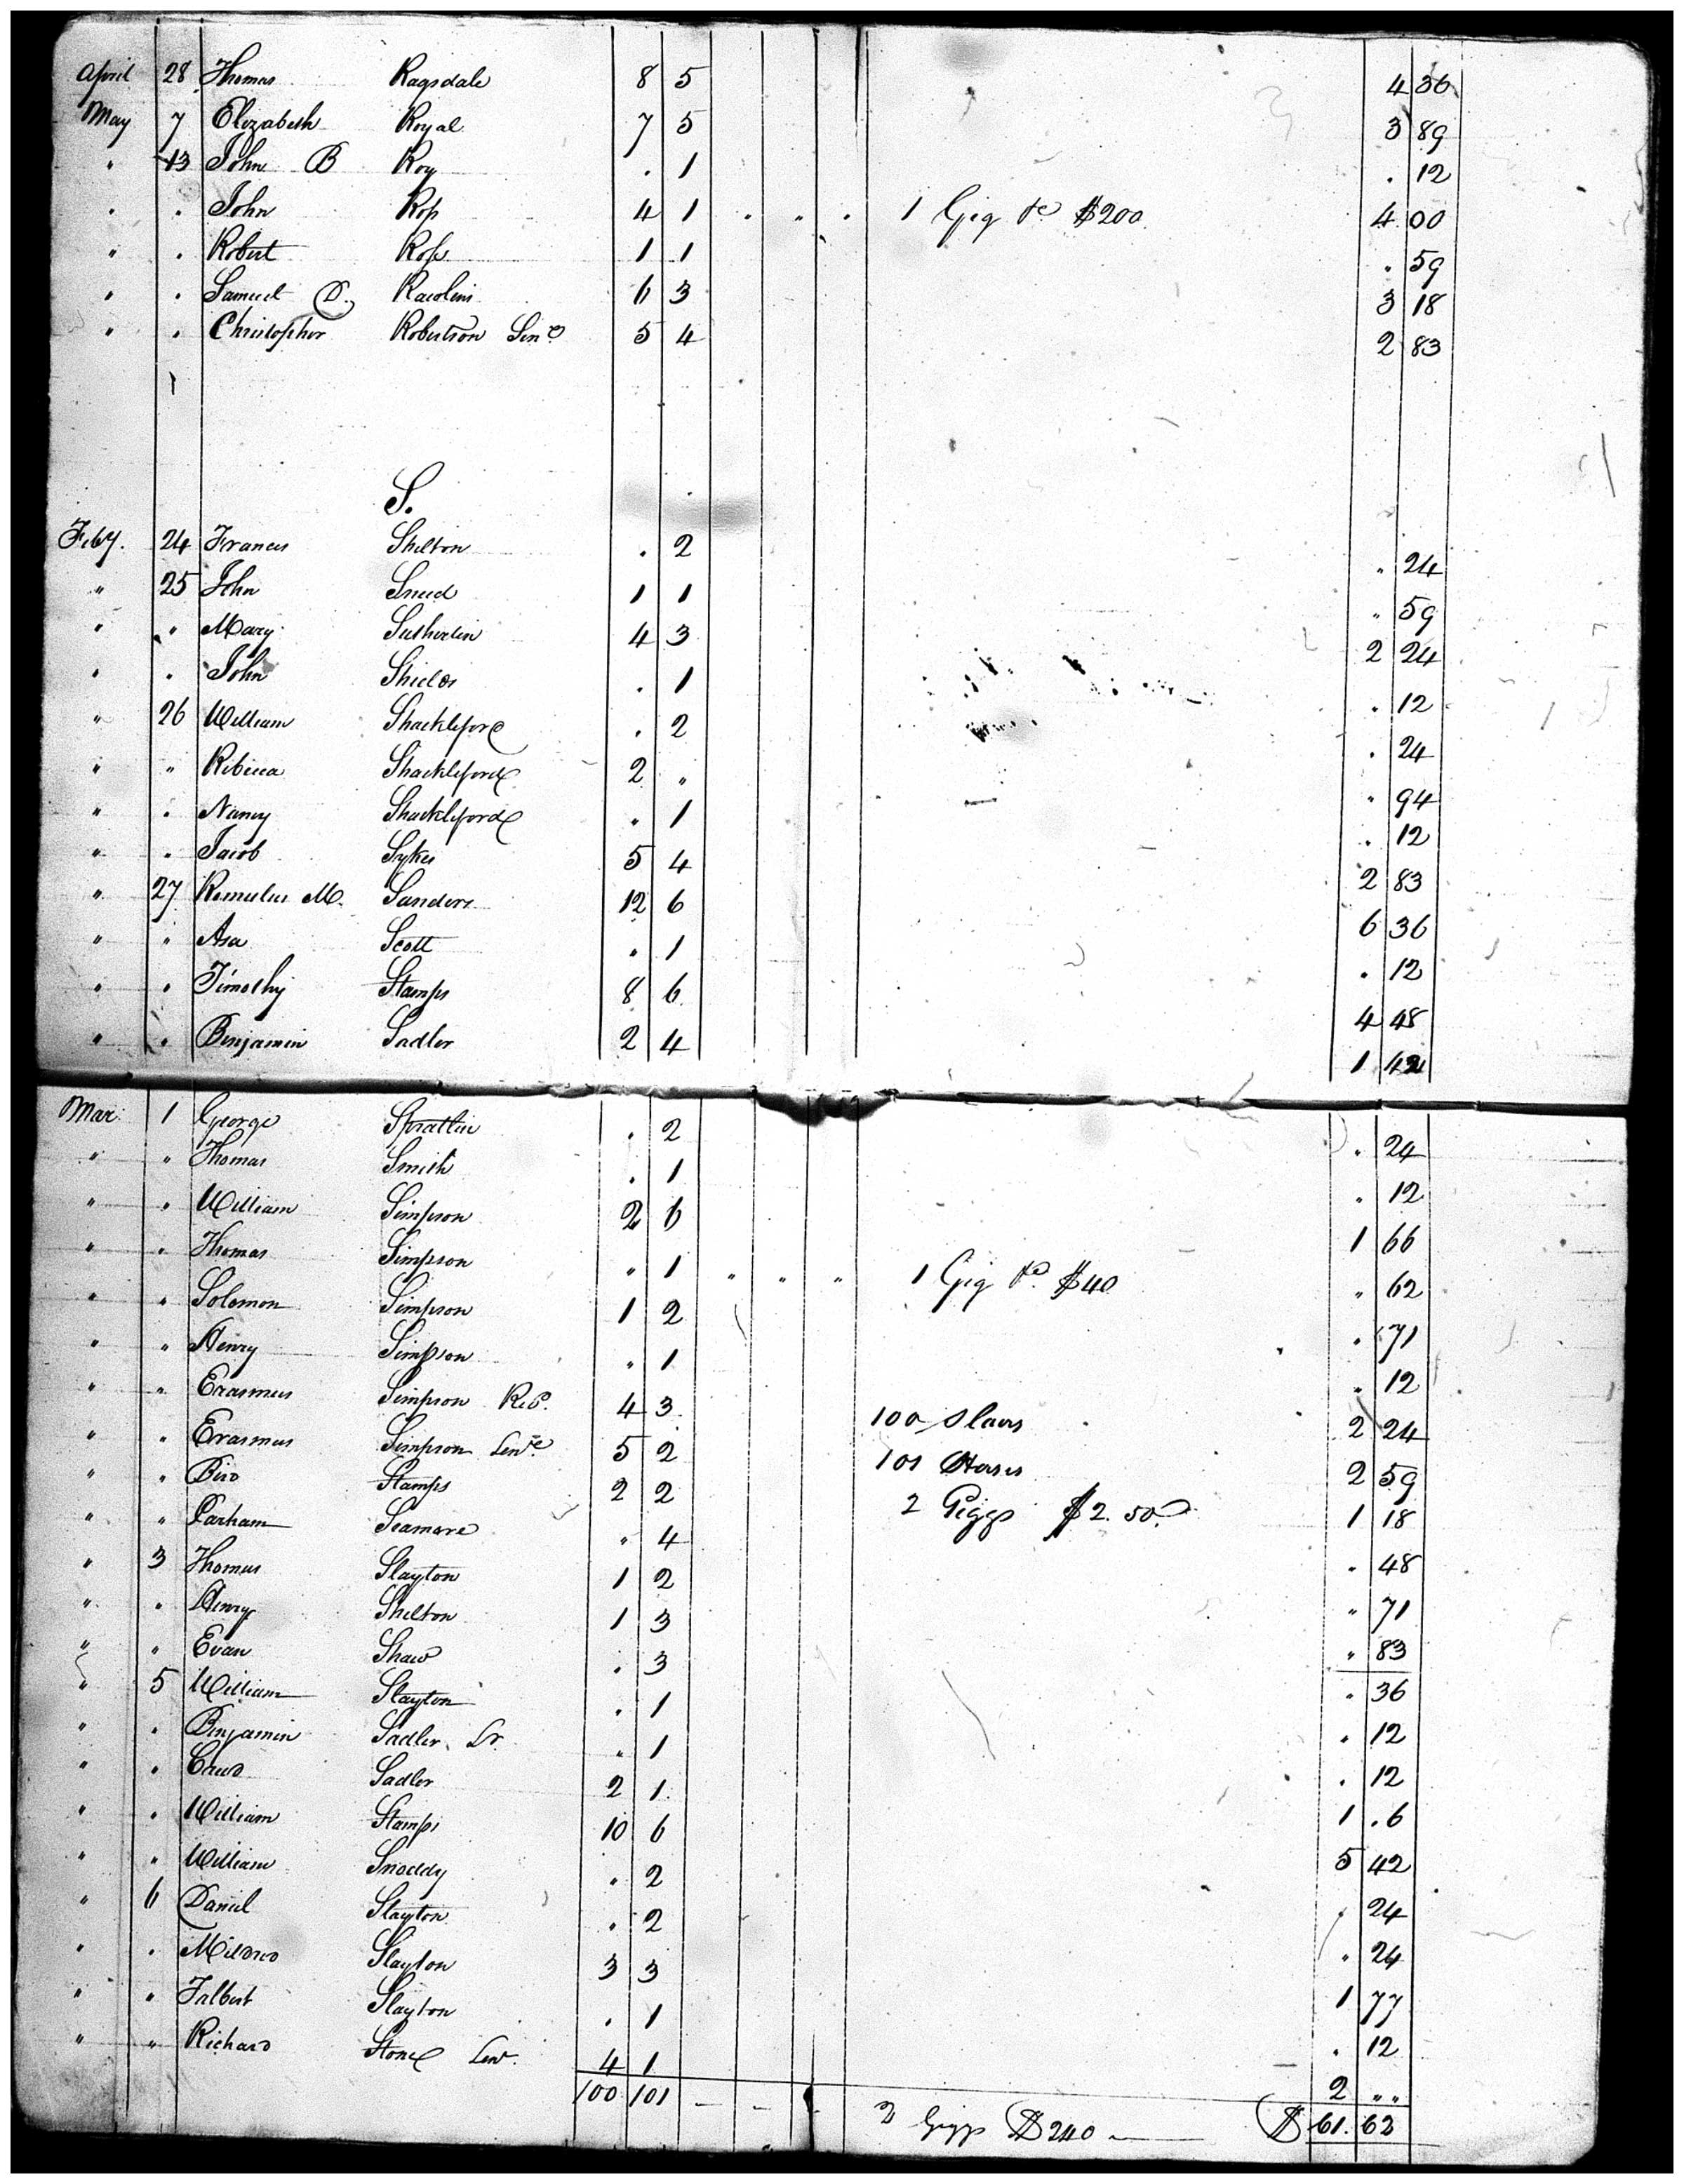 April 28 Thomas Ragsdale 8 5 4 36
May 7 Elizabeth Royal 7 5 3 89
" 13 John B Roy . 1 . 12
" . John Ross 4 1 . . . 1 Gig &c $200 4 00
" . Robert Ross 1 1 . 59
" . Samuel D. Rawlins 6 3 3 18
" . Christopher Robertson Senr 5 4 2 83
S.
Feby. 24 Frances Shelton . 2 " 24
" 25 John Sneed 1 1 " 59
" " Mary Sutherlin 4 3 2 24
" . John Shields . 1 . 12
" 26 William Shackleford . 2 . 24
" " Rebecca Shackleford 2 " " 94
" . Nancy Shackleford " 1 . 12
" . Jacob Sykes 5 4 2 83
" 27 Romulus M. Sanders 12 6 6 36
" " Asa Scott " 1 . 12
" " Timothy Stamps 8 6 4 48
" . Benjamin Sadler 2 4 1 42
Mar 1 George Spratlin . 2 " 24
" " Thomas Smith . 1 " 12
" " William Simpson 2 6 1 66
" . Thomas Simpson " 1 " " " 1 Gig &c $40 " 62
" " Solomon Simpson 1 2 . 71
" " Henry Simpson " 1 " 12
" " Erasmus Simpson 4 3 100 Slaves 2 24
" . Erasmus Simpson Senr 5 2 101 Horses 2 59
" " Bird Stamps 2 2 2 Giggs $2.50 1 18
" " Parham Seamore " 4 . 48
" 3 Thomas Slayton 1 2 " 71
" . Henry Shelton 1 3 " 83
" " Evan Shaw . 3 . 36
" 5 William Slayton . 1 . 12
" . Benjamin Sadler Sr . 1 . 12
" . Sadler 2 1 1 . 6
" . William Stamps 10 6 5 42
" " William Snoddy " 2 . 24
" 6 Daniel Slayton . 2 " 24
" . Mildred Slayton 3 3 1 77
" " Talbert Slayton . 1 . 12
" " Richard Stone Senr 4 1 2 " "
100 101 - - 2 Giggs $240 $ 61.62